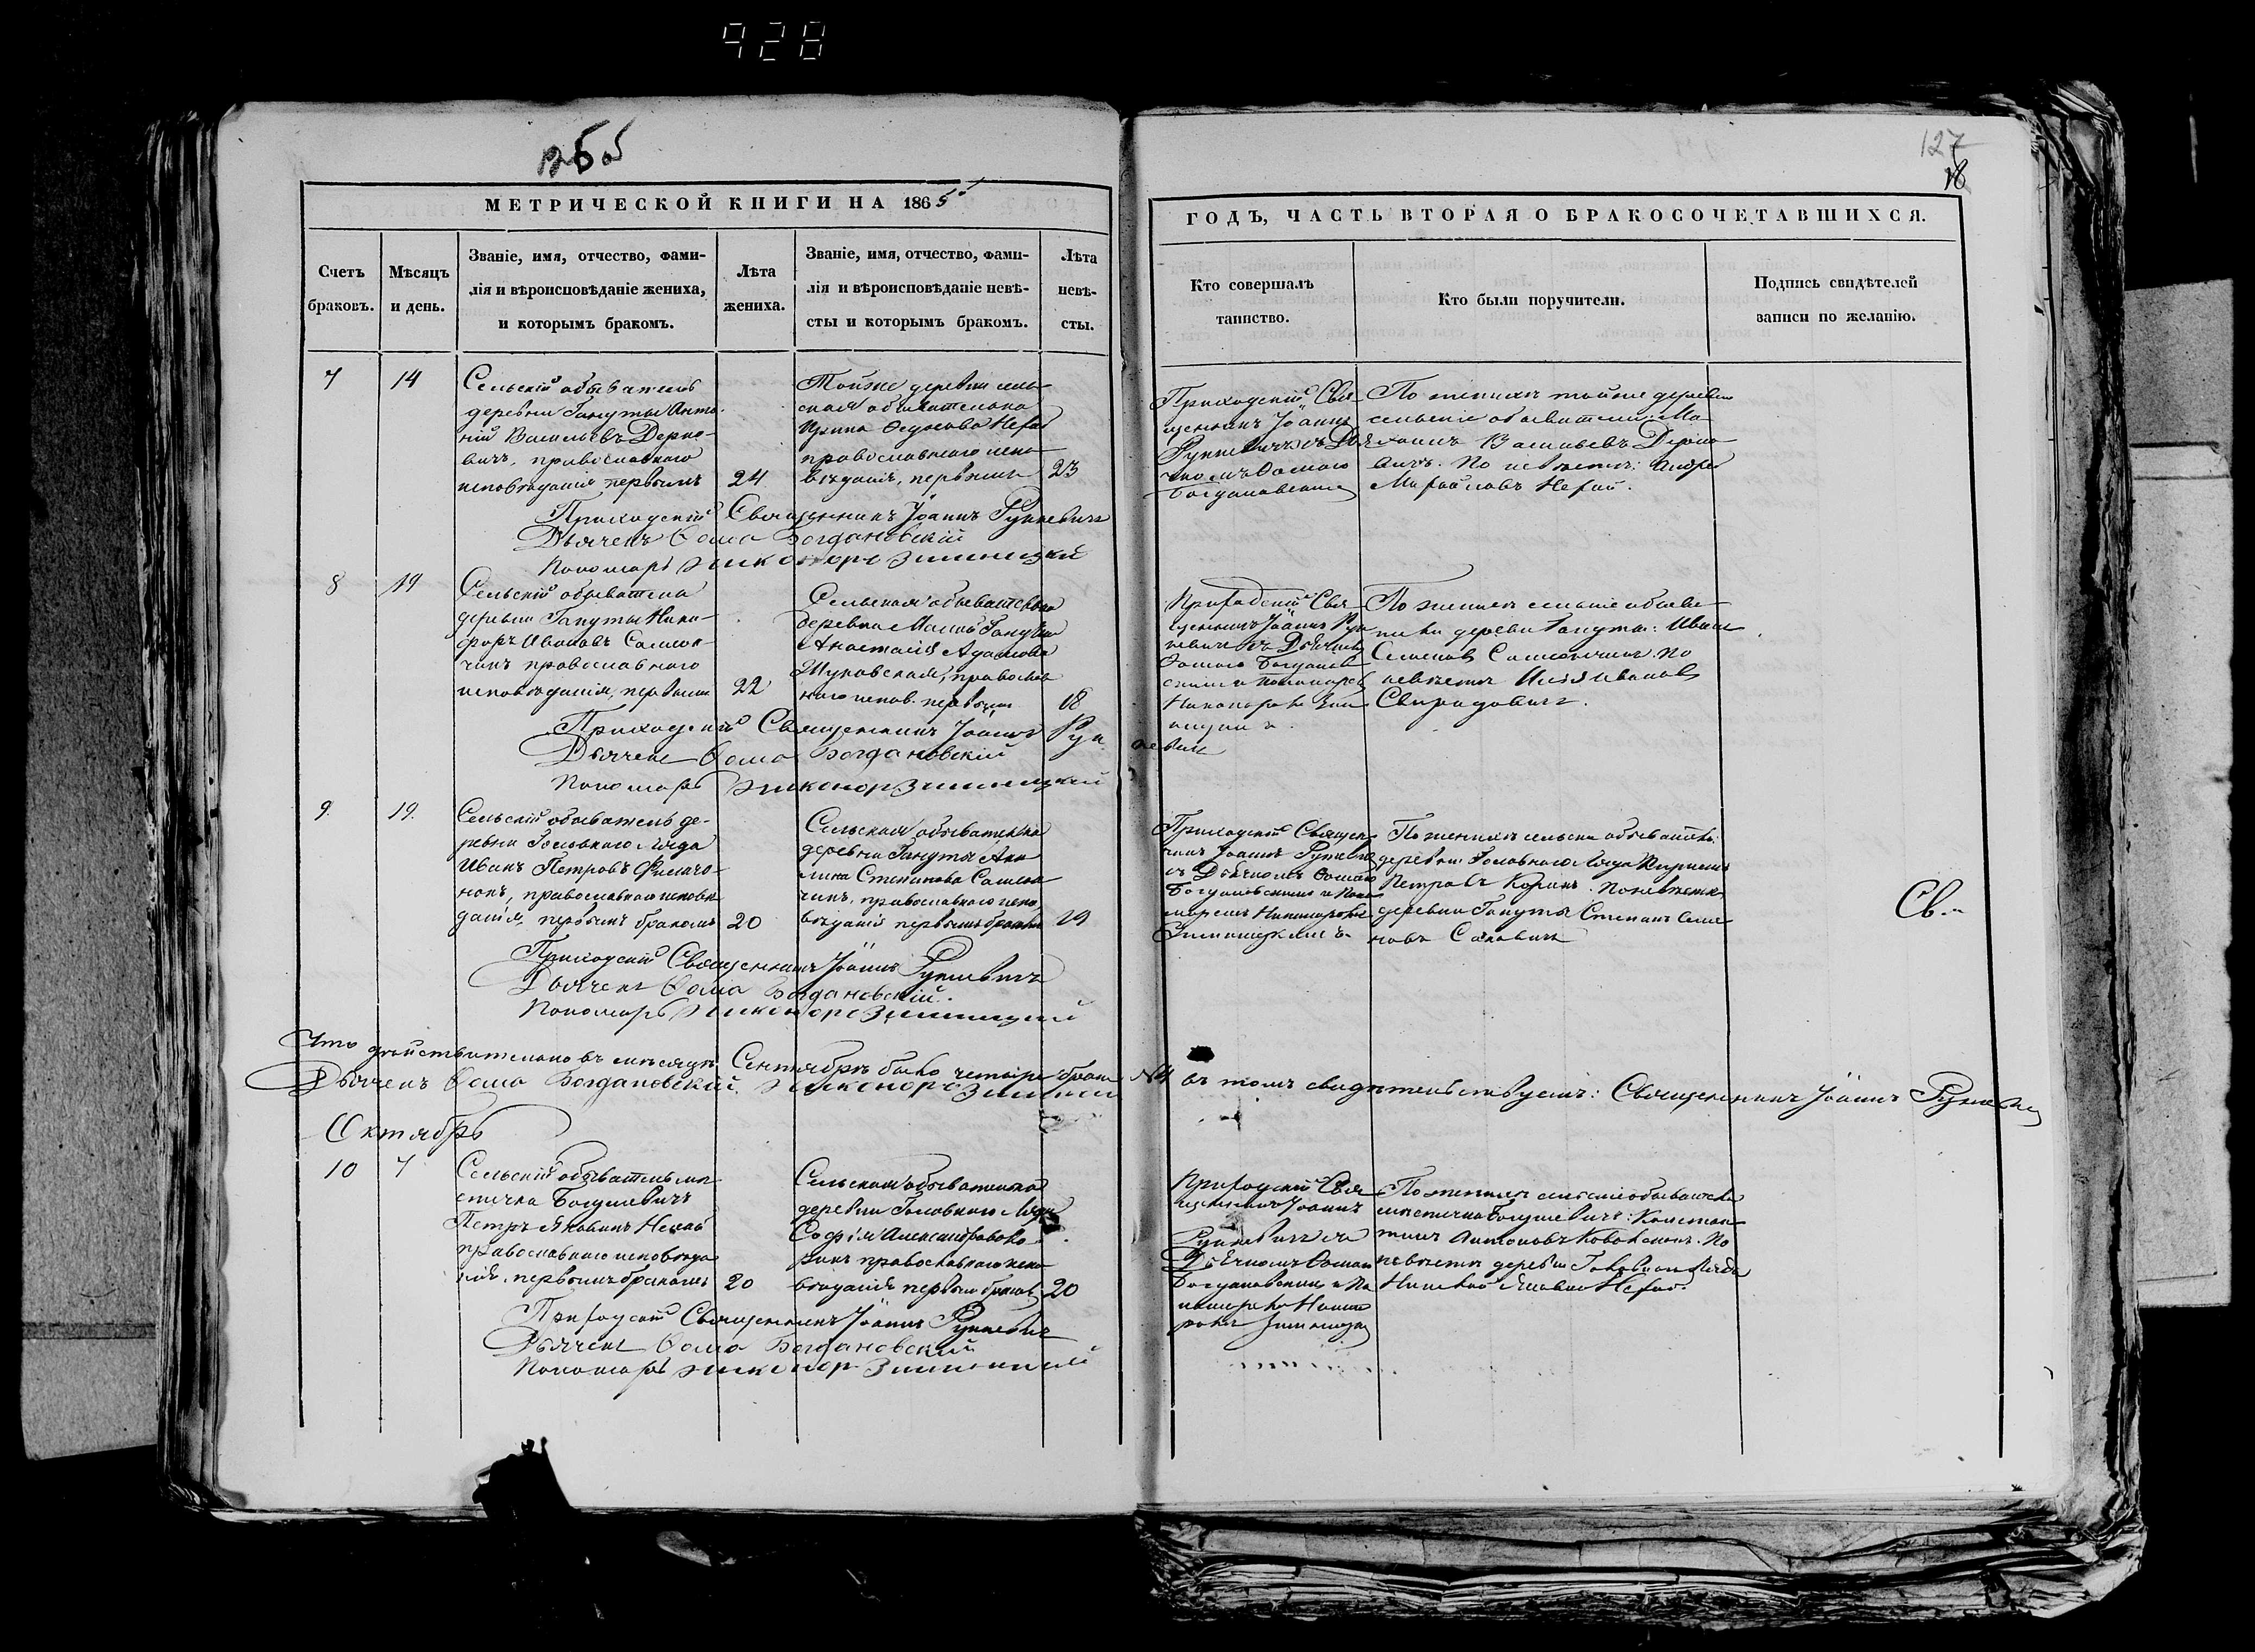 928
127
18
МЕТРИЧЕСКОЙ КНИГИ НА 1865
ГОДЪ, ЧАСТЬ ВТОРАЯ О БРАКОСОЧЕТАВШИХСЯ.
Счетъ браковъ.
Мѣсяцъ и день.
Званіе, имя, отчество, фами-
лія и вѣроисповѣданіе жениха,
и которымъ бракомъ.
Лѣта жениха.
Званіе, имя, отчество, фами-
лія и вѣроисповѣданіе невѣ-
сты и которымъ бракомъ.
Лѣта невѣ-
сты.
Кто совершалъ
таинство.
Кто были поручители.
Подпись свидѣтелей
записи по желанію.
7
14
Сельскій обыватель
деревни Гануты Анто-
ній Васильевъ Дерно-
вичъ, православнаго
исповѣданія первымъ
24
Тойже деревни сель-
ская обывателька
православнаго испо-
вѣданія, первымъ
23
Приходскій Свя-
щенникъ Іоаннъ
Рункевичъ съ Дья
чкомъ Ѳомою
Богдановскимъ
По женихѣ тойже деревни
сельскіе обыватели:
Васильевъ Дерно
вичъ. По невѣстѣ: Андрей
Приходскій Священникъ Іоаннъ Рункевичъ
Дьячекъ Ѳома Богдановскій
Пономарь Никоноръ Зимницкій
8
19
Сельскій обыватель
деревни Гануты Ники-
форъ Ивановъ
православнаго
исповѣданія, первымъ
22
Сельская обывателька
деревни Малой
Анастасія Адамова
Жуковская, православ
наго испов. первымъ
18
Приходскій Свя-
щенникъ Іоаннъ Рун
кевичъ съ Дьячкомъ
Ѳомою Богданов
скимъ и пономаремъ
По женихѣ сельскіе обыва-
деревни Гануты: Иванъ
По
невѣстѣ Илья Ивановъ
Свиридовичъ.
Приходскій Священникъ Іоаннъ Рун
кевичъ
Дьячекъ Ѳома Богдановскій
Пономарь Никоноръ Зимницкій
9.
19.
Сельскій обыватель де-
ревни Головнаго Ляда
Иванъ Петровъ Филипо-
православнаго исповѣ
данія, первымъ бракомъ
20
Сельская обывателька
деревни Гануты Аку
лина Степанова
православнаго испо
вѣданія первымъ бракомъ
19
Приходскій Священ
никъ Іоаннъ Рункевичъ
съ Дьячкомъ Ѳомою
Богдановскимъ и Поно
маремъ
По женихѣ сельскій обыватель
деревни Головнаго Ляда
Петровъ По невѣстѣ
деревни Гануты Степанъ
Св.
Приходскій Священникъ Іоаннъ Рункевичъ
Дьячекъ Ѳома Богдановскій.
Пономарь Никоноръ Зимницкій
Что дѣйствительно въ мѣсяцѣ Сентябрѣ было четыре брака №4 въ томъ свидѣтельствуемъ: Священникъ Іоаннъ Рункевичъ
Дьячекъ Ѳома Богдановскій. Никоноръ Зимницкій
Октябрь
10
7
Сельскій обыватель мѣ
стечка Богушевичъ
Петръ
православнаго исповѣда
нія, первымъ бракомъ
20
Сельская обывателька
деревни Головнаго Ляда
Софія Александрова
православнаго испо
вѣданія первымъ бракомъ
20
Приходскій Свя
щенникъ Іоаннъ
Рункевичъ съ
Дьячкомъ Ѳомою
Богдановскимъ и По
номаремъ
По женихѣ сельскіе обыватели
мѣстечка Богушевичъ: Констан
тинъ Антоновъ По
невѣстѣ деревни Головнаго Ляда
Приходскій Священникъ Іоаннъ Рункевичъ
Дьячекъ Ѳома Богдановскій
Пономарь Никоноръ Зимницкій